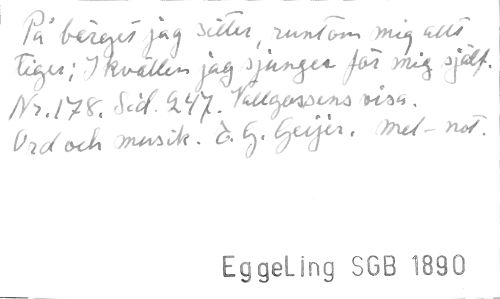 På berget jag sitter, runtom mig allt
tiger; I kvällen jag sjunger för mig själf.
Nr. 178. Sid. 247. Vallgossens visa.
Ord och musik. E. G. Geijer. mel-not.
EggeLing SGB 1890